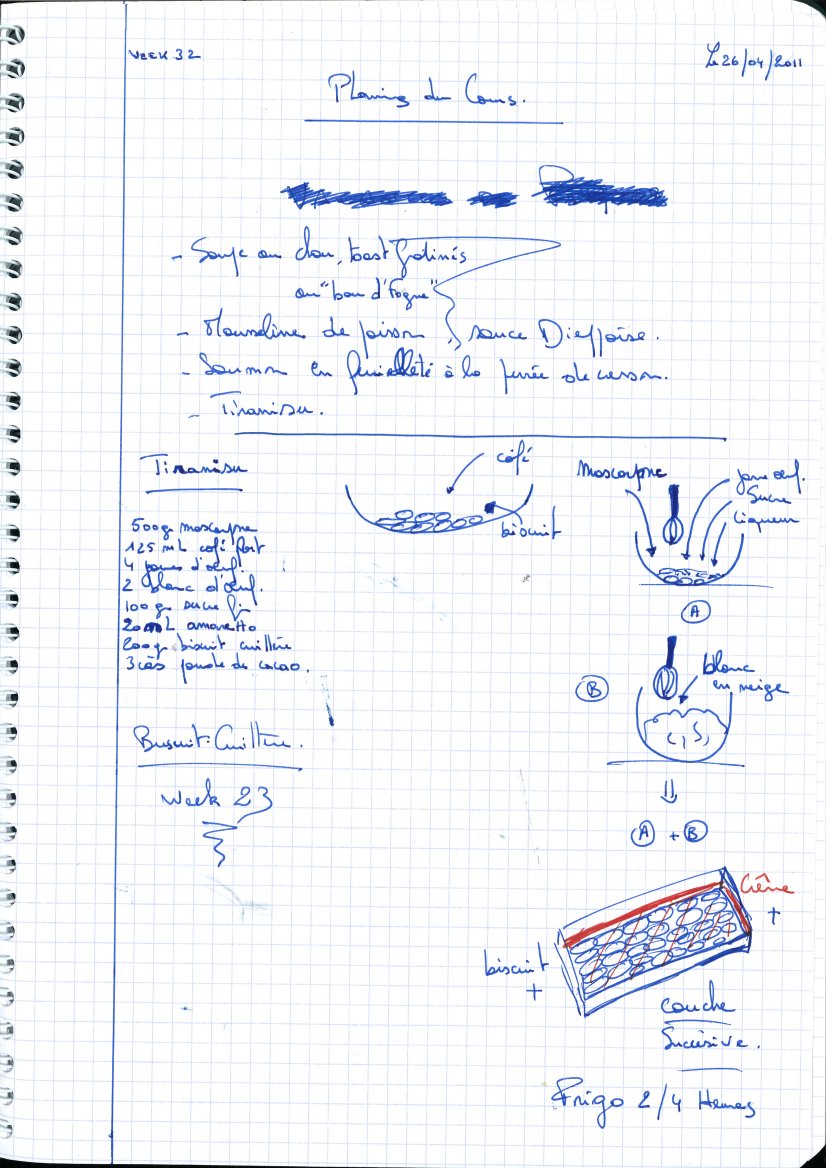 WEEK 32
Le 26/04/2011
Planing du Cours.
- Soupe au chou, toast Gratinés
au "bon d'Fogne"
- Mousseline de poisson, sauce Dieppoise.
- Saumon en feuilleté à la purée de cresson.
- Tiramisu.
Tiramisu
500gr mascarpne
125 mL café fort
4 jaunes d'œuf.
2 blanc d'œuf.
100 gr sucre fin
20 mL amaretto
200gr biscuit cuillère
3 càs poudre de cacao.
café
biscuit
Mascarpne
jaune œuf.
Sucre
liqueur
A
B
blanc
en neige
A + B
Biscuit Cuillère.
Week 23
Crême
+
biscuit
+
couche
Succésive.
Frigo 2/4 Heures